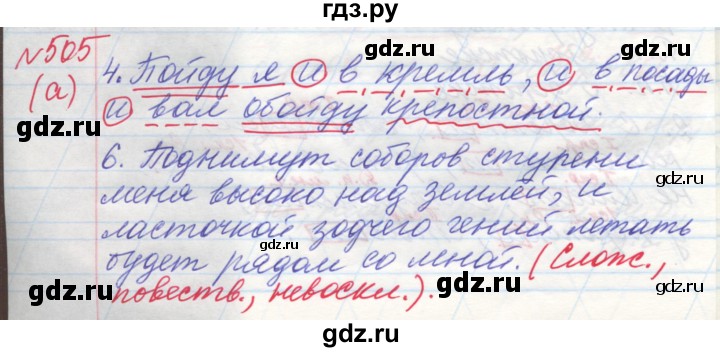 гдз.ру
№505
(а)
4. Пойду я и в кремль, и в посады
и вал обойду крепостной.
6. Поднимут соборов ступени
меня высоко над землёй, и
ласточкой зодчего гений летать
будет рядом со мной. (Слож.,
повеств., невоскл.).
gdz.ru gdz.ru gdz.ru
gdz.ru gdz.ru
gdz.ru gdz.ru
gdz.ru gdz.ru
gdz.ru gdz.ru
gdz.ru gdz.ru